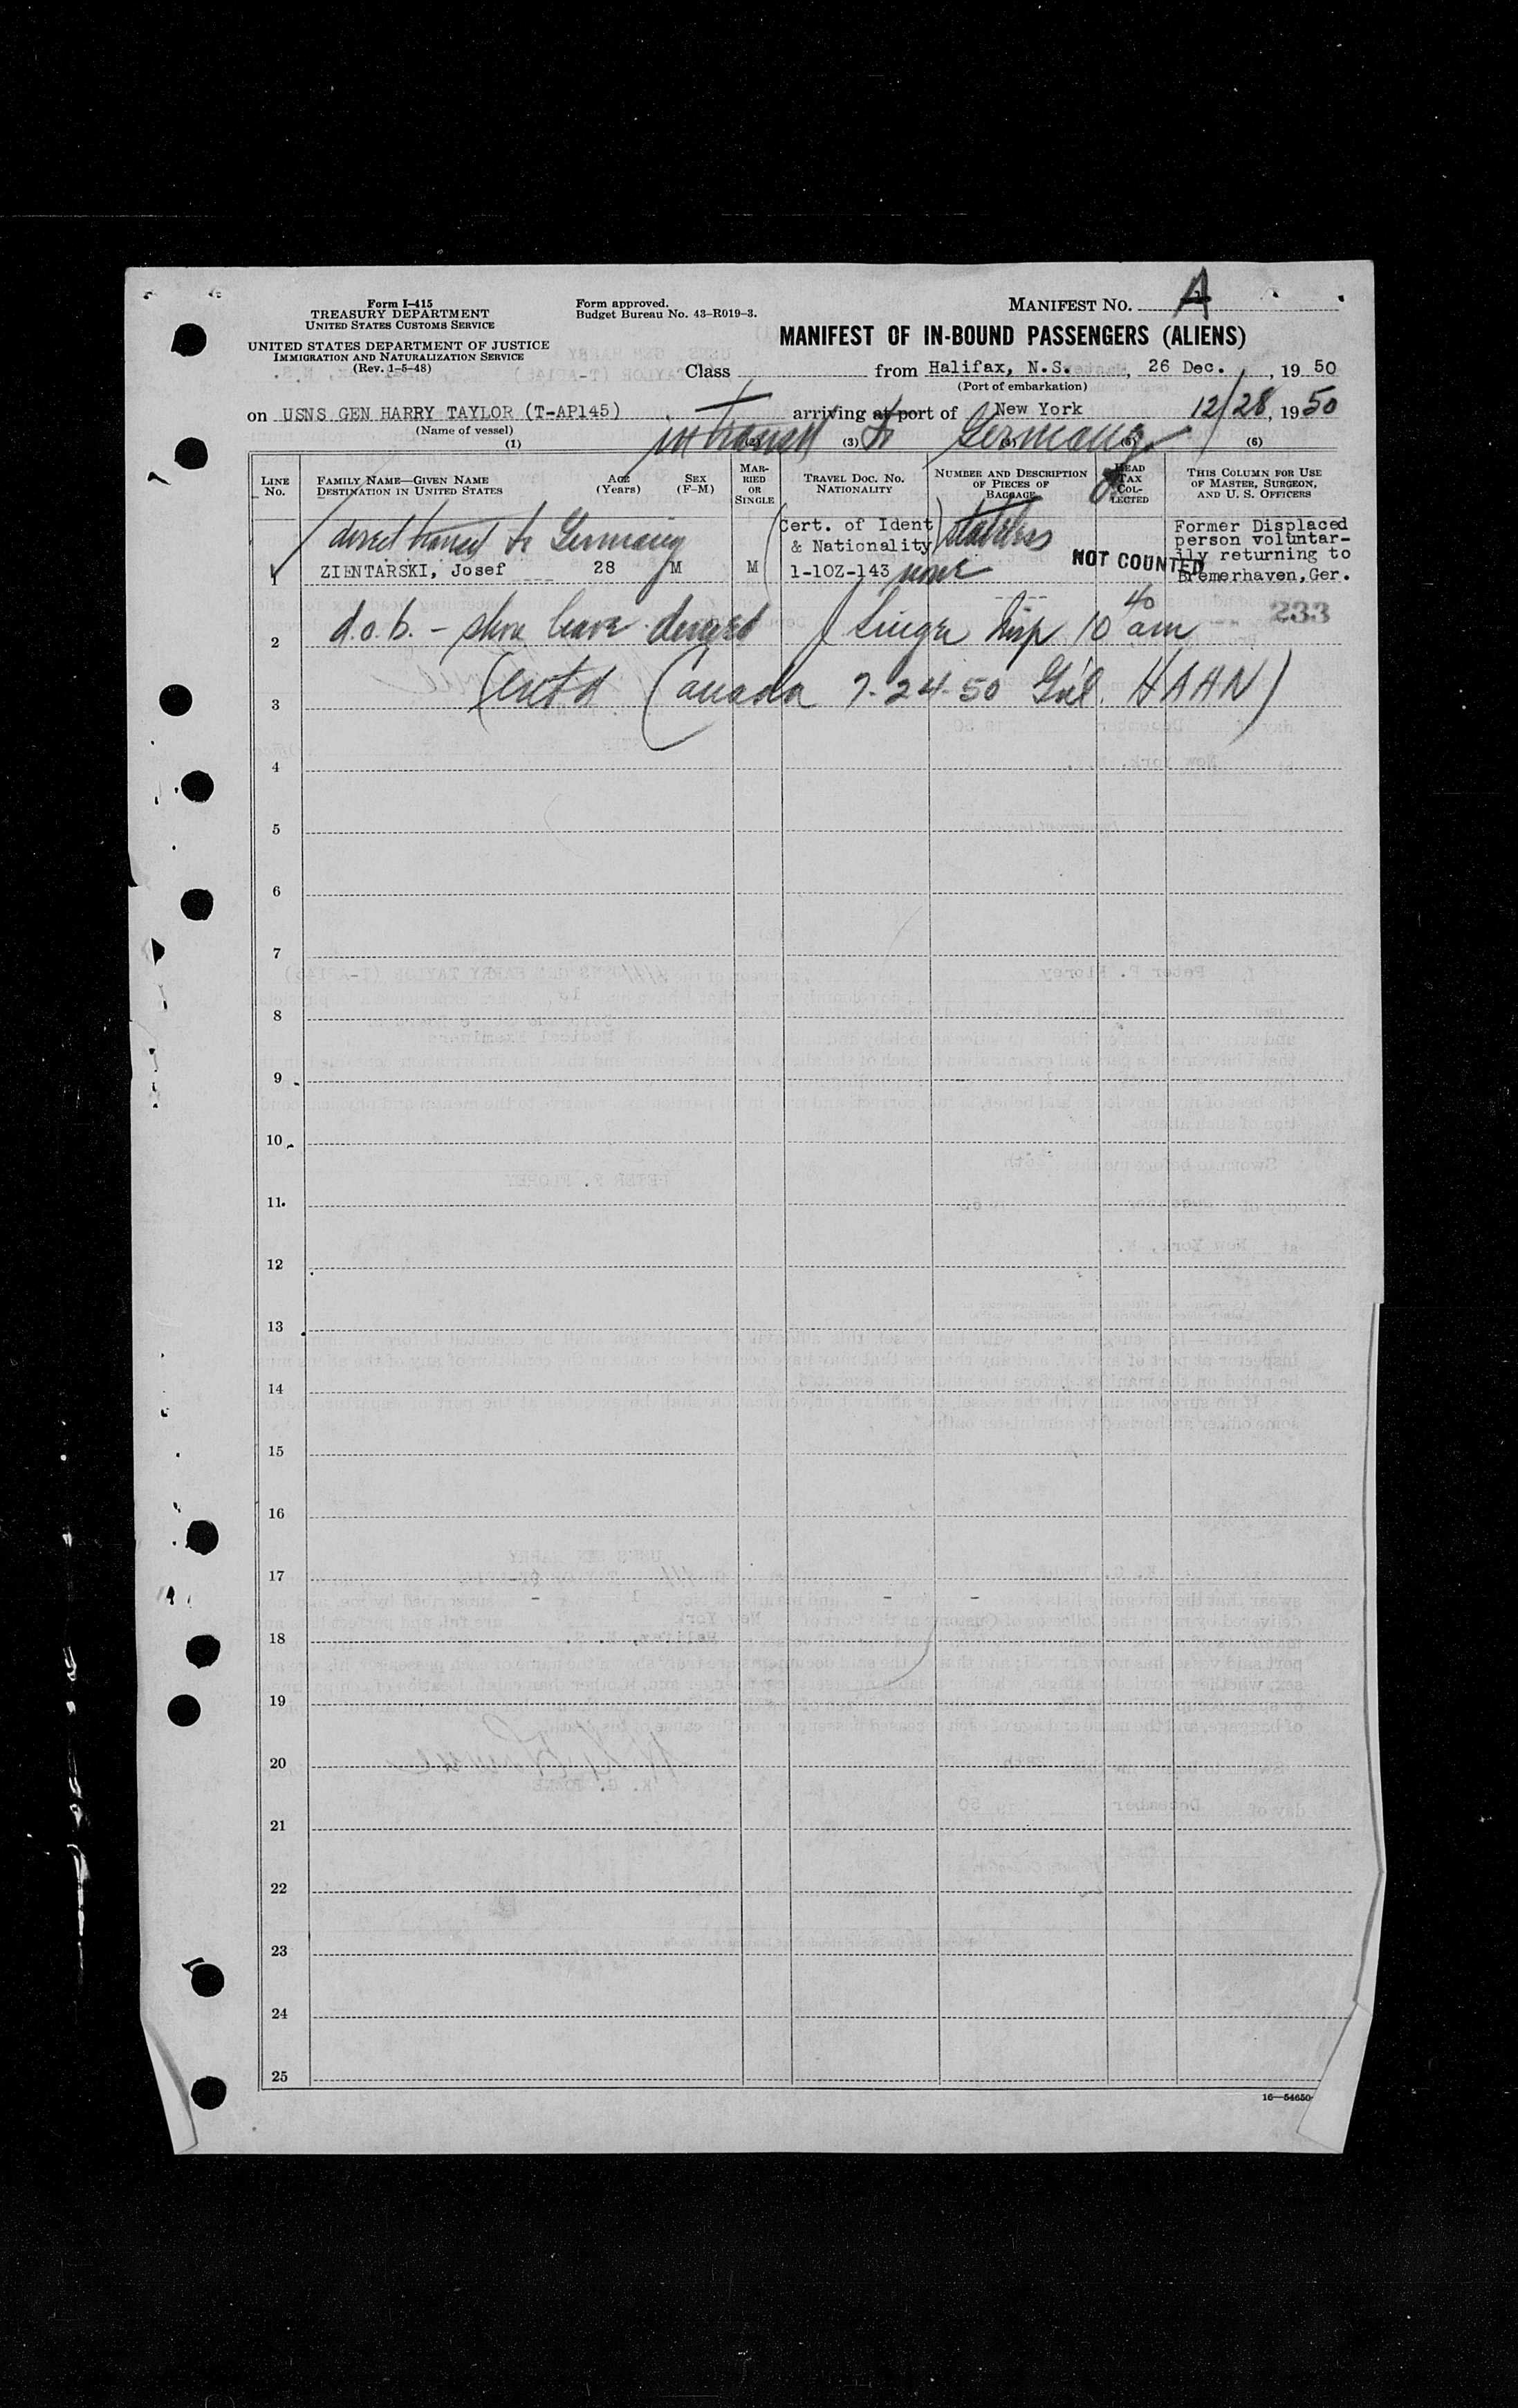 Form I-415
TREASURY DEPARTMENT
UNITED STATES CUSTOMS SERVICE
UNITED STATES DEPARTMENT OF JUSTICE
IMMIGRATION AND NATURALIZATION SERVICE
(Rev. 1-5-48)
Form approved.
Budget Bureau No. 43-R019-3.
MANIFEST No. A
MANIFEST OF IN-BOUND PASSENGERS (ALIENS)
Class from Halifax, N.S., 26 Dec., 1950
(Port of embarkation)
on USNS GEN HARRY TAYLOR (T-AP145) arriving at port of New York 12/28, 1950
(Name of vessel)
in transit to Germany
(1) (2) (3) (4) (5) (6)
LINE No.
FAMILY NAME—GIVEN NAME
DESTINATION IN UNITED STATES
AGE (Years)
SEX (F-M)
MARRIED OR SINGLE
TRAVEL DOC. NO.
NATIONALITY
NUMBER AND DESCRIPTION OF PIECES OF BAGGAGE
HEAD TAX COLLECTED
THIS COLUMN FOR USE OF MASTER, SURGEON, AND U. S. OFFICERS
direct transit to Germany
Cert. of Ident & Nationality
stateless
Former Displaced person voluntarily returning to Bremerhaven, Ger.
1 ZIENTARSKI, Josef 28 M M 1-10Z-143 none
NOT COUNTED
233
2 d.o.b. - shore leave denied 10 40 am
3 (entd Canada 7-24-50 Gnl. HAAN)
4
5
6
7
8
9
10
11
12
13
14
15
16
17
18
19
20
21
22
23
24
25
16—54650